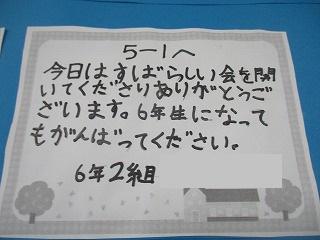 5-1へ
今日はすばらしい会を開
いてくださりありがとうご
ざいます。6年生になって
もがんばってください。
6年2組